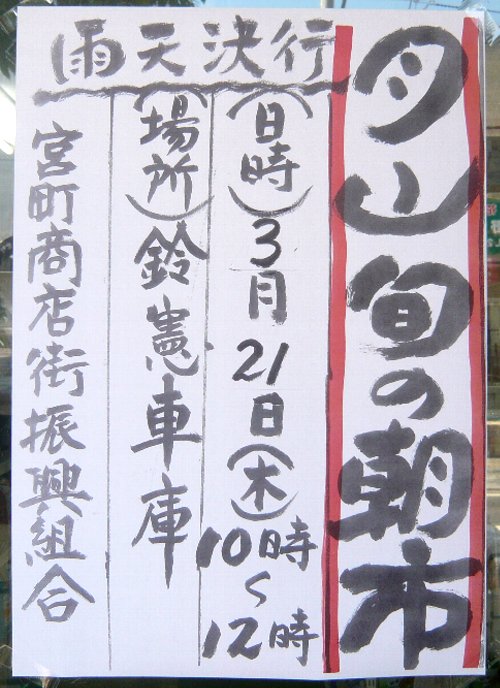 月山旬の朝市
雨天決行
(日時)3月21日(木)10時~12時
(場所)鈴憲車庫
宮町商店街振興組合